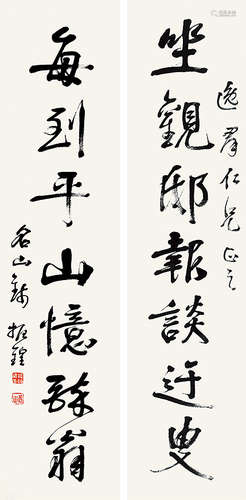 坐觀邸報談迂叟
逸群仁兄正之
每到平山憶醉翁
名山錢振鍠